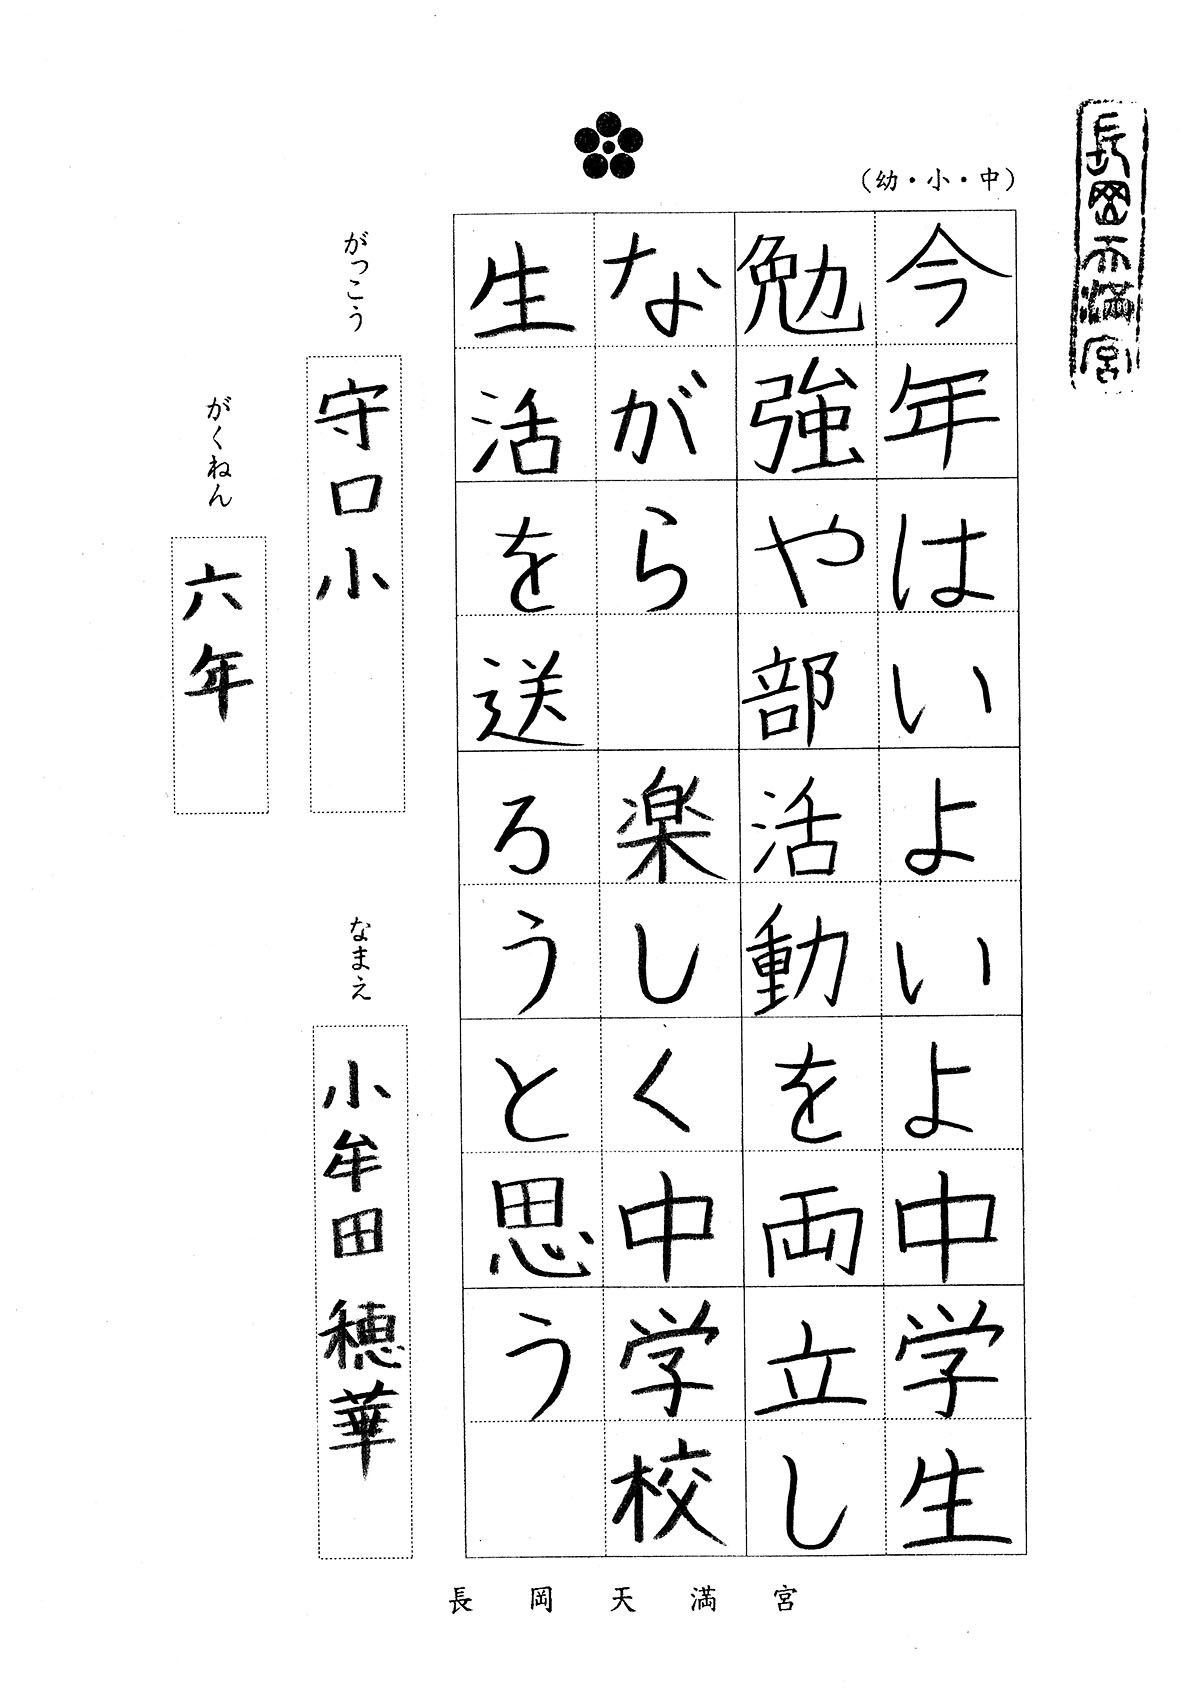 長岡天満宮
（幼・小・中）
今年はいよいよ中学生
勉強や部活動を両立し
ながら　楽しく中学校
生活を送ろうと思う
がっこう
守口小
がくねん
六年
なまえ
小牟田穂華
長岡天満宮